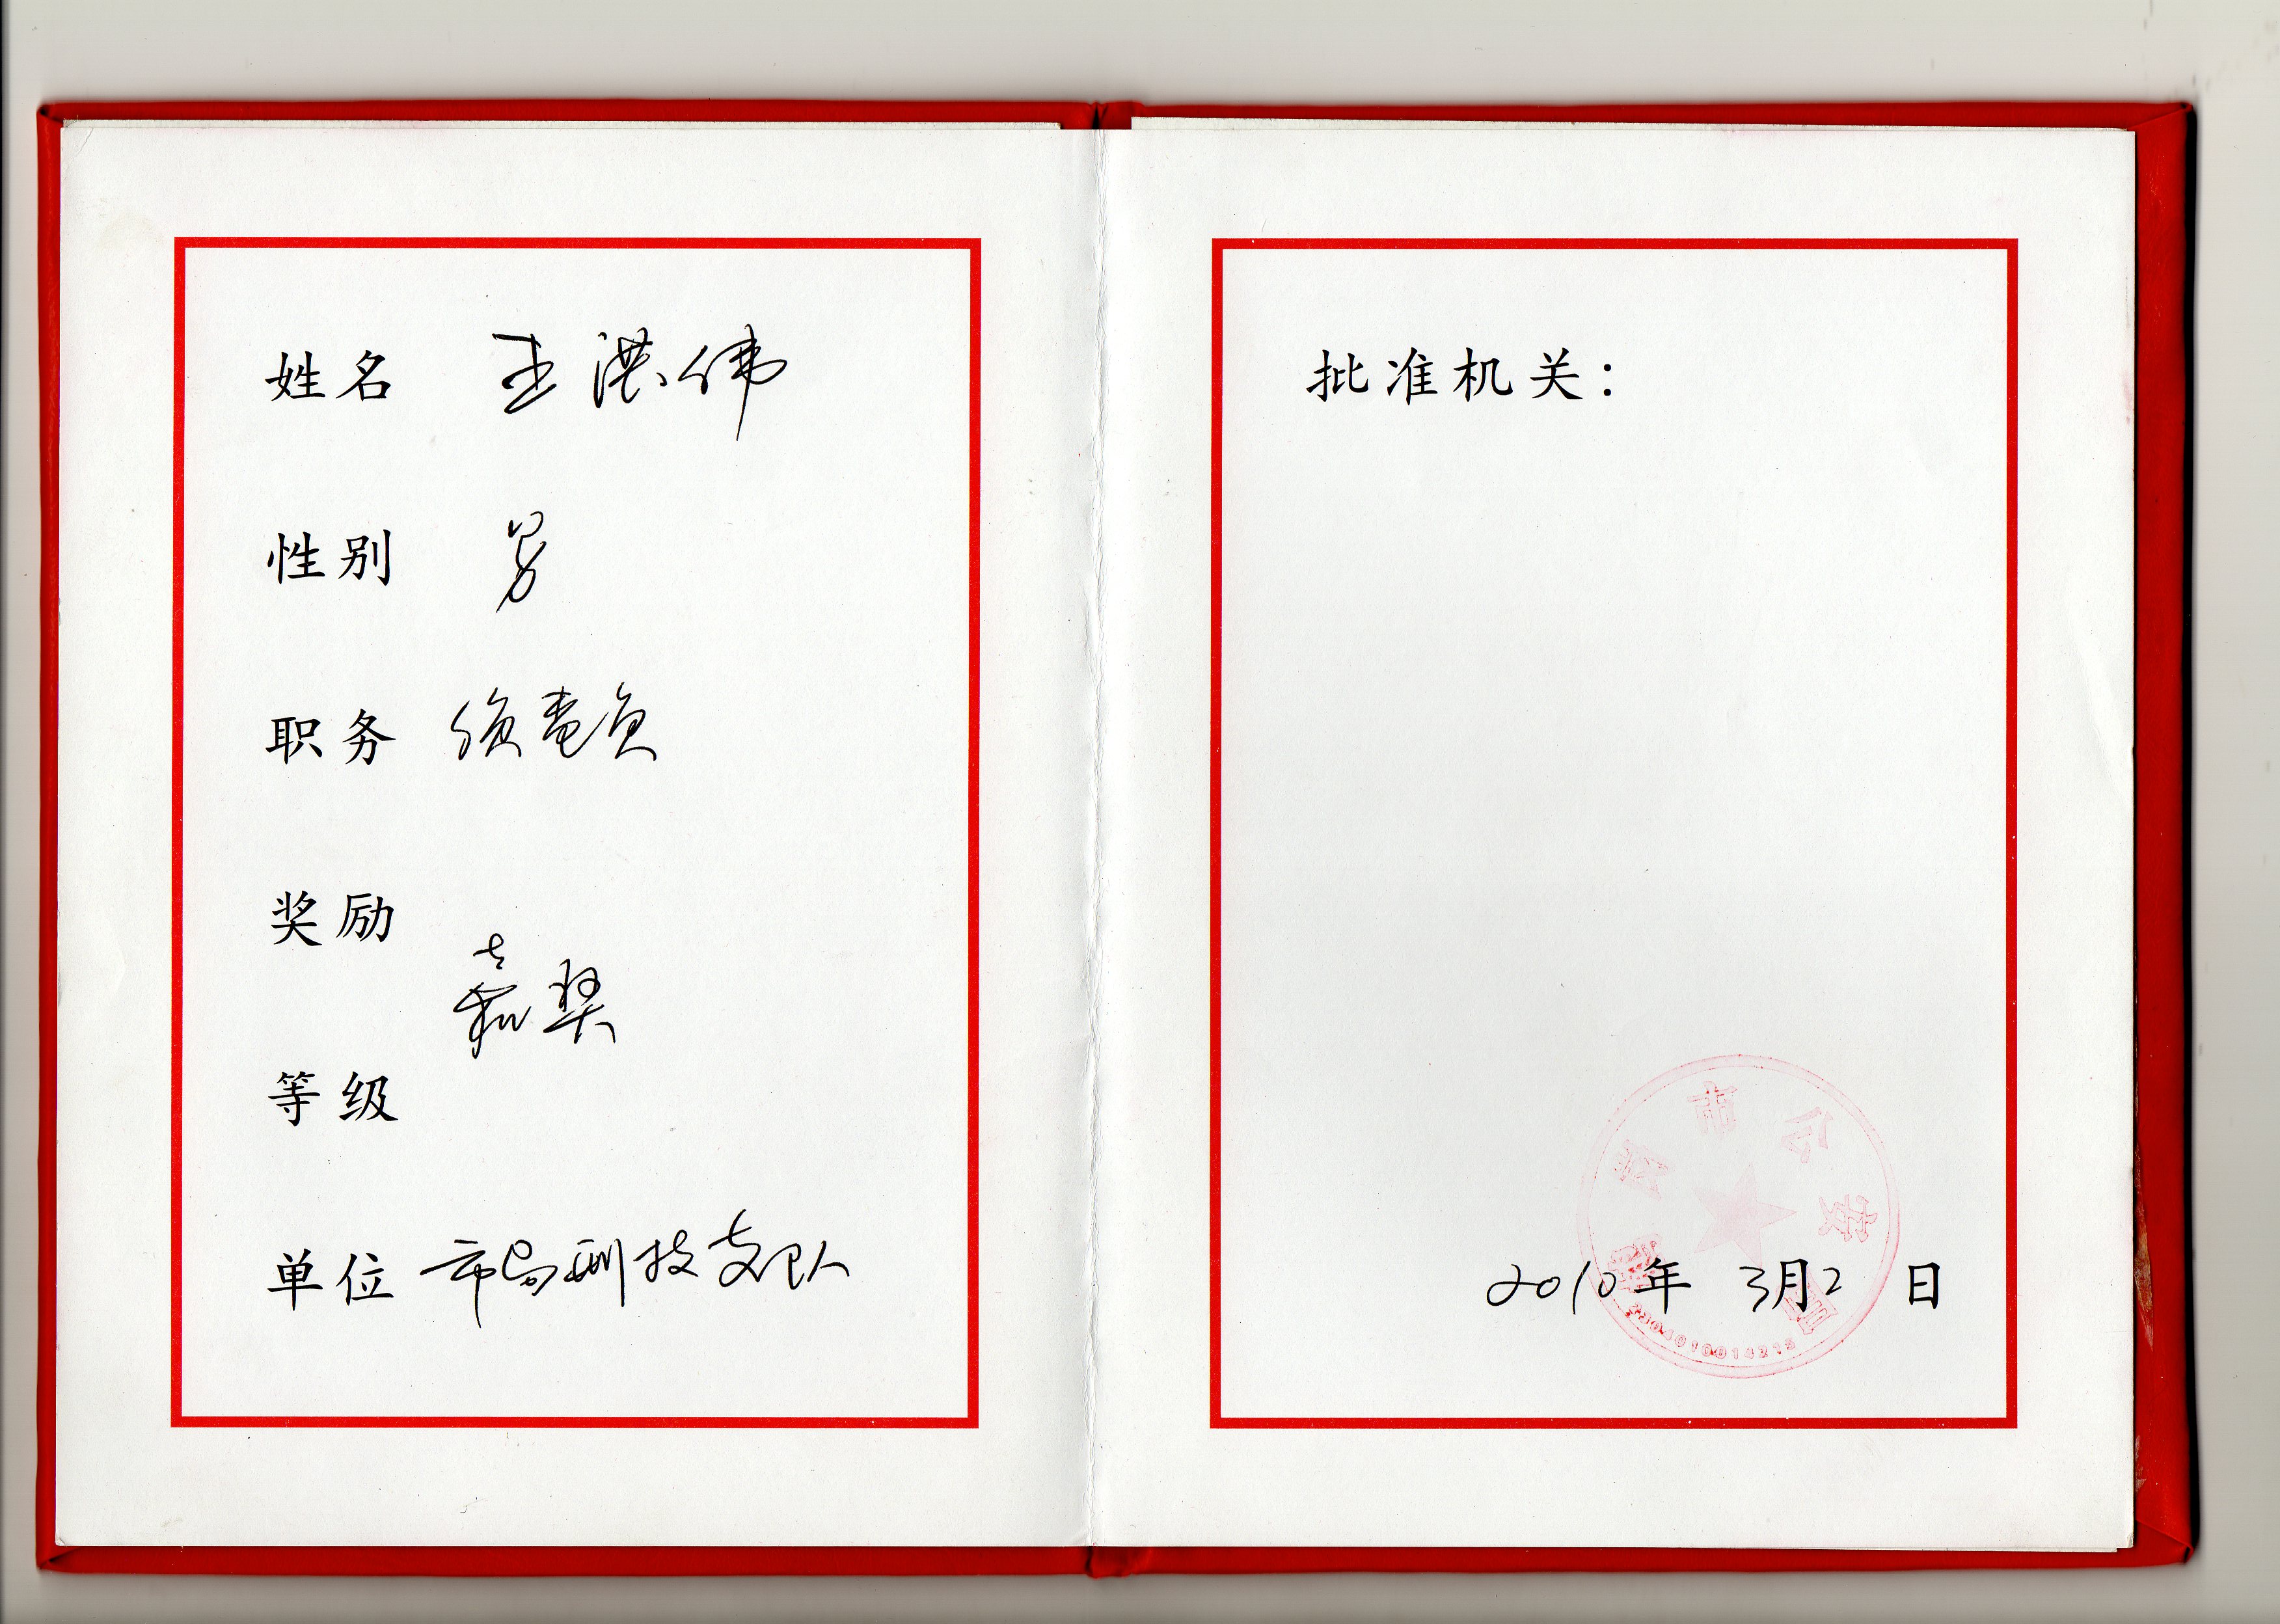 姓名 王洪伟
性别 男
职务 侦查员
奖励
嘉奖
等级
单位 市局刑技支队
批准机关:
市公安局
2010年 3月2 日